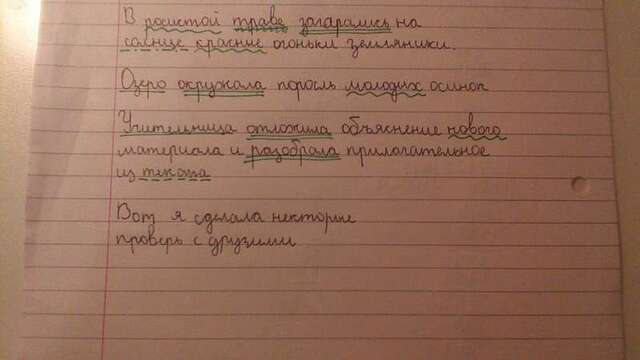 В росистой траве загарались на
солнце красние огоньки земляники.
Озеро окружала поросль молодих осинок
Учительница отложила объяснение нового
материала и разобрала прилагательное
из текста
Вот я сделала некторие
проверь с друзими